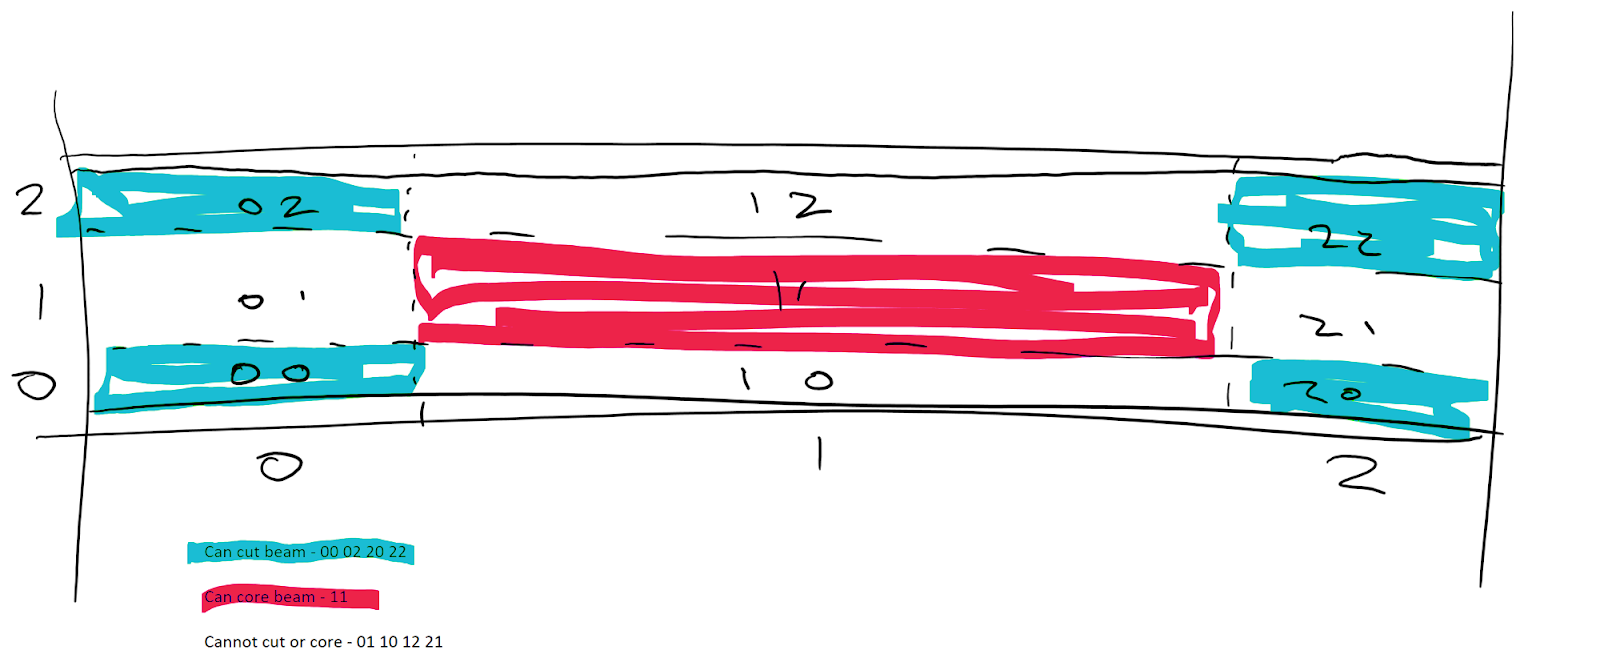 2 02 12 22
1 01 11 21
0 00 10 20
0 1 2
Can cut beam - 00 02 20 22
Can core beam - 11
Cannot cut or core - 01 10 12 21